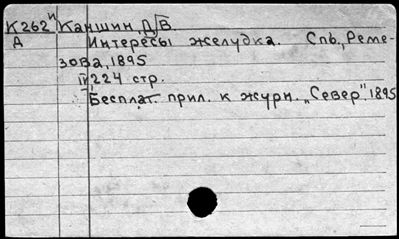 К262и Каншин, Д/В.
Д Интересы желудка. Спб., Реме-
зова, 1895
II, 224 стр.
Бесплат. прил. к журн. „Север", 1895